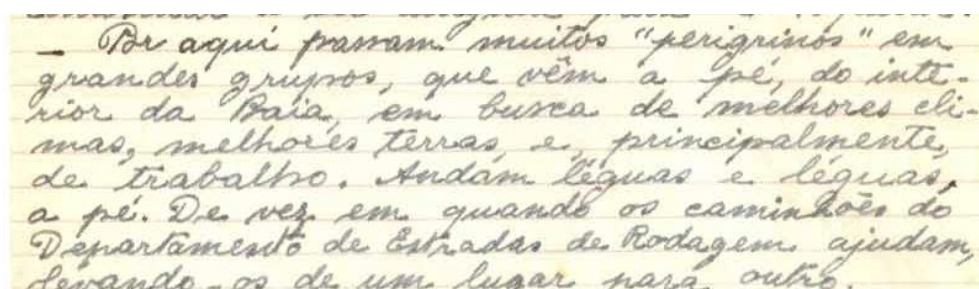 – Por aqui passam muitos "perigrinos" em
grandes grupos, que vêm a pé, do inte-
rior da Baía, em busca de melhores cli-
mas, melhores terras, e, principalmente,
de trabalho. Andam léguas e léguas,
a pé. De vez em quando os caminhões do
Departamento de Estradas de Rodagem ajudam,
levando-os de um lugar para outro.